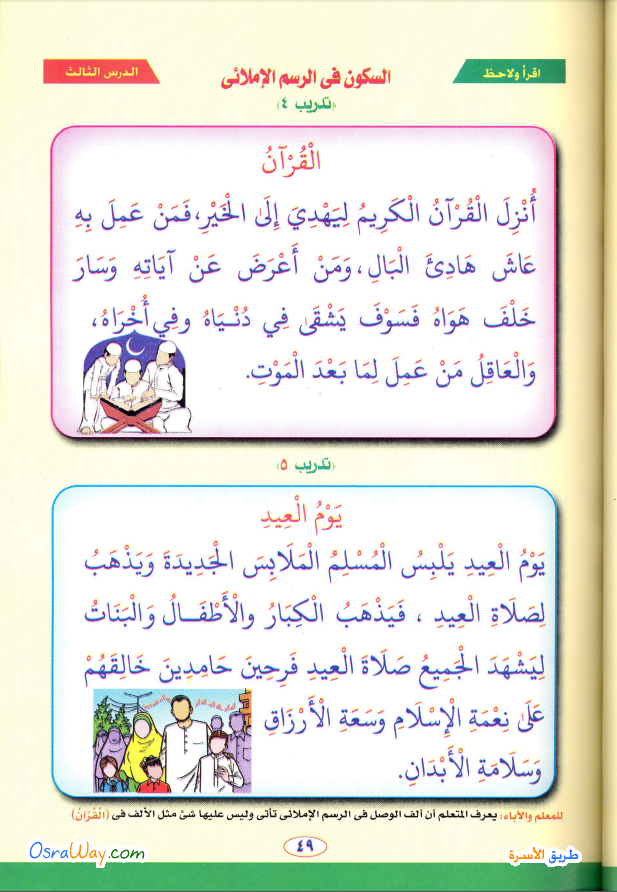 اقرأ ولاحظ
السكون فى الرسم الإملائى
الدرس الثالث
(تدريب ٤)
الْقُرْآنُ
أُنْزِلَ الْقُرْآنُ الْكَرِيمُ لِيَهْدِيَ إِلَى الْخَيْرِ،فَمَنْ عَمِلَ بِهِ
عَاشَ هَادِئَ الْبَالِ،وَمَنْ أَعْرَضَ عَنْ آيَاتِهِ وَسَارَ
خَلْفَ هَوَاهُ فَسَوْفَ يَشْقَى فِي دُنْيَاهُ وفِي أُخْرَاهُ،
وَالْعَاقِلُ مَنْ عَمِلَ لِمَا بَعْدَ الْمَوْتِ.
(تدريب ٥)
يَوْمُ الْعِيدِ
يَوْمُ الْعِيدِ يَلْبِسُ الْمُسْلِمُ الْمَلَابِسَ الْجَدِيدَةَ وَيَذْهَبُ
لِصَلَاةِ الْعِيدِ ، فَيَذْهَبُ الْكِبَارُ والْأَطْفَـالُ وَالْبَنَاتُ
لِيَشْهَدَ الْجَمِيعُ صَلَاةَ الْعِيدِ فَرِحِينَ حَامِدِينَ خَالِقَهُمْ
عَلَى نِعْمَةِ الْإِسْلَامِ وَسَعَةِ الْأَرْزَاقِ
وَسَلَامَةِ الْأَبْدَانِ.
للمعلم والآباء: يعرف المتعلم أن ألف الوصل فى الرسم الإملائى تأتى وليس عليها شئ مثل الألف فى (الْقُرْآنُ)
طريق الأسرة
٤٩
OsraWay.com